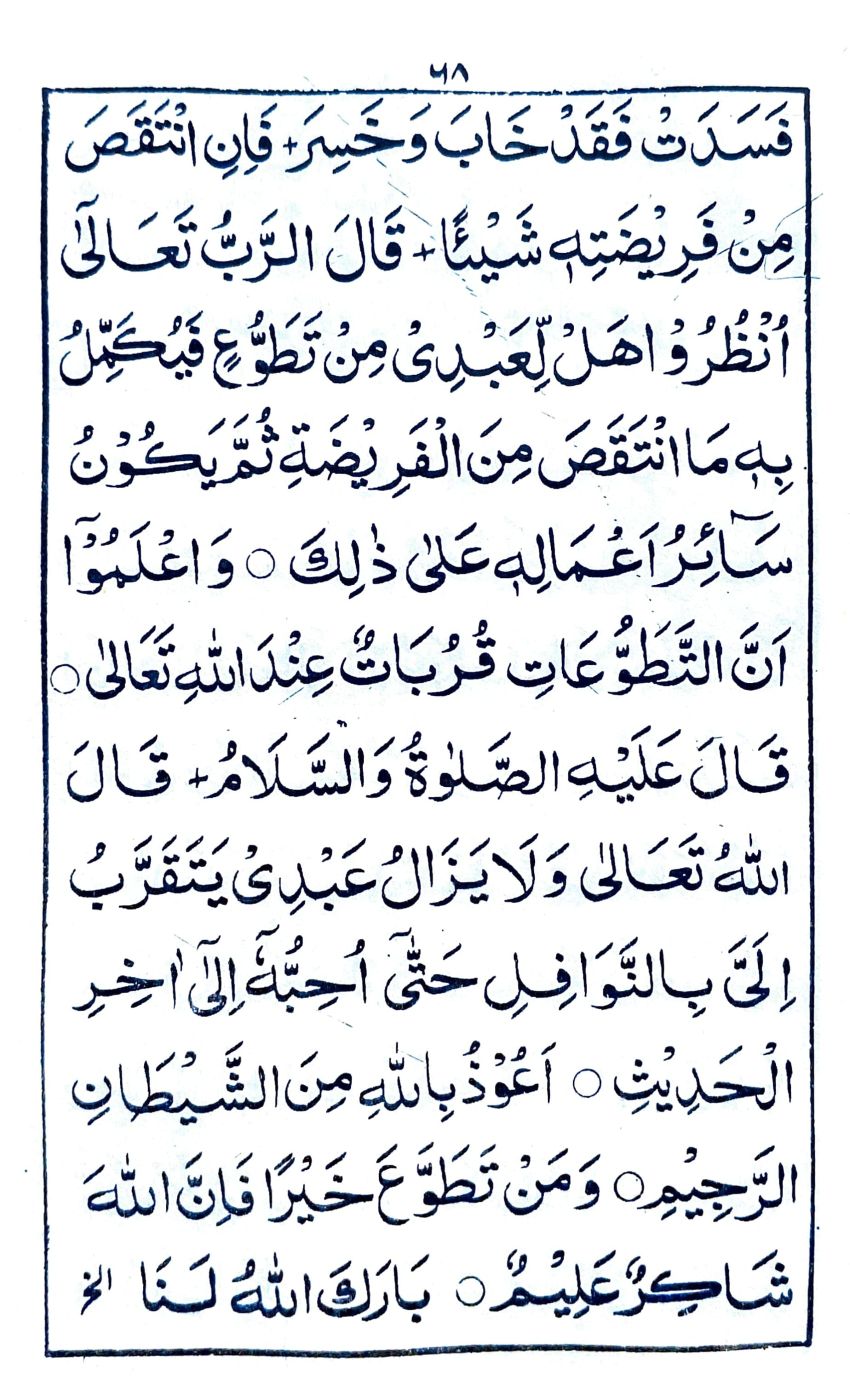 ٦٨
فَسَدَتْ فَقَدْ خَابَ وَخَسِرَ + فَاِنِ انْتَقَصَ
مِنْ فَرِيْضَتِهٖ شَيْئًا + قَالَ الرَّبُّ تَعَالٰٓى
اُنْظُرُوْا هَلْ لِّعَبْدِىْ مِنْ تَطَوُّعٍ فَيُكَمِّلُ
بِهٖ مَا انْتَقَصَ مِنَ الْفَرِيْضَةِ ثُمَّ يَكُوْنُ
سَآئِرُ اَعْمَالِهٖ عَلٰى ذٰلِكَ ○ وَاعْلَمُوْٓا
اَنَّ التَّطَوُّعَاتِ قُرُبَاتٌ عِنْدَ اللّٰهِ تَعَالٰى ○
قَالَ عَلَيْهِ الصَّلٰوةُ وَالسَّلَامُ + قَالَ
اللّٰهُ تَعَالٰى وَلَا يَزَالُ عَبْدِىْ يَتَقَرَّبُ
اِلَىَّ بِالنَّوَافِلِ حَتّٰٓى اُحِبُّهٗٓ اِلٰٓى اٰخِرِ
الْحَدِيْثِ ○ اَعُوْذُ بِاللّٰهِ مِنَ الشَّيْطَانِ
الرَّجِيْمِ ○ وَمَنْ تَطَوَّعَ خَيْرًا فَاِنَّ اللّٰهَ
شَاكِرٌ عَلِيْمٌ ○ بَارَكَ اللّٰهُ لَنَا الخ